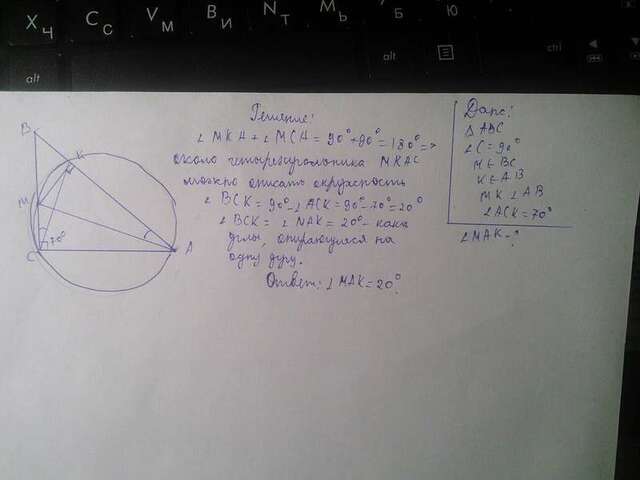 Х Ч
С С
V М
В И
N Т
М Ь
Б
Ю
alt
alt
ctrl
Решение:
∠MKA+∠MCA=90°+90°=180°=>
около четырехугольника MKAC
можно описать окружность
∠BCK=90°-∠ACK=90°-70°=20°
∠BCK=∠NAK=20°- как
углы, опирающиеся на
одну дугу.
Ответ: ∠MAK=20°.
Дано:
△ABC
∠C=90°
M∈BC
K∈AB
MK⊥AB
∠ACK=70°
∠MAK-?
B
K
M
C
70°
A